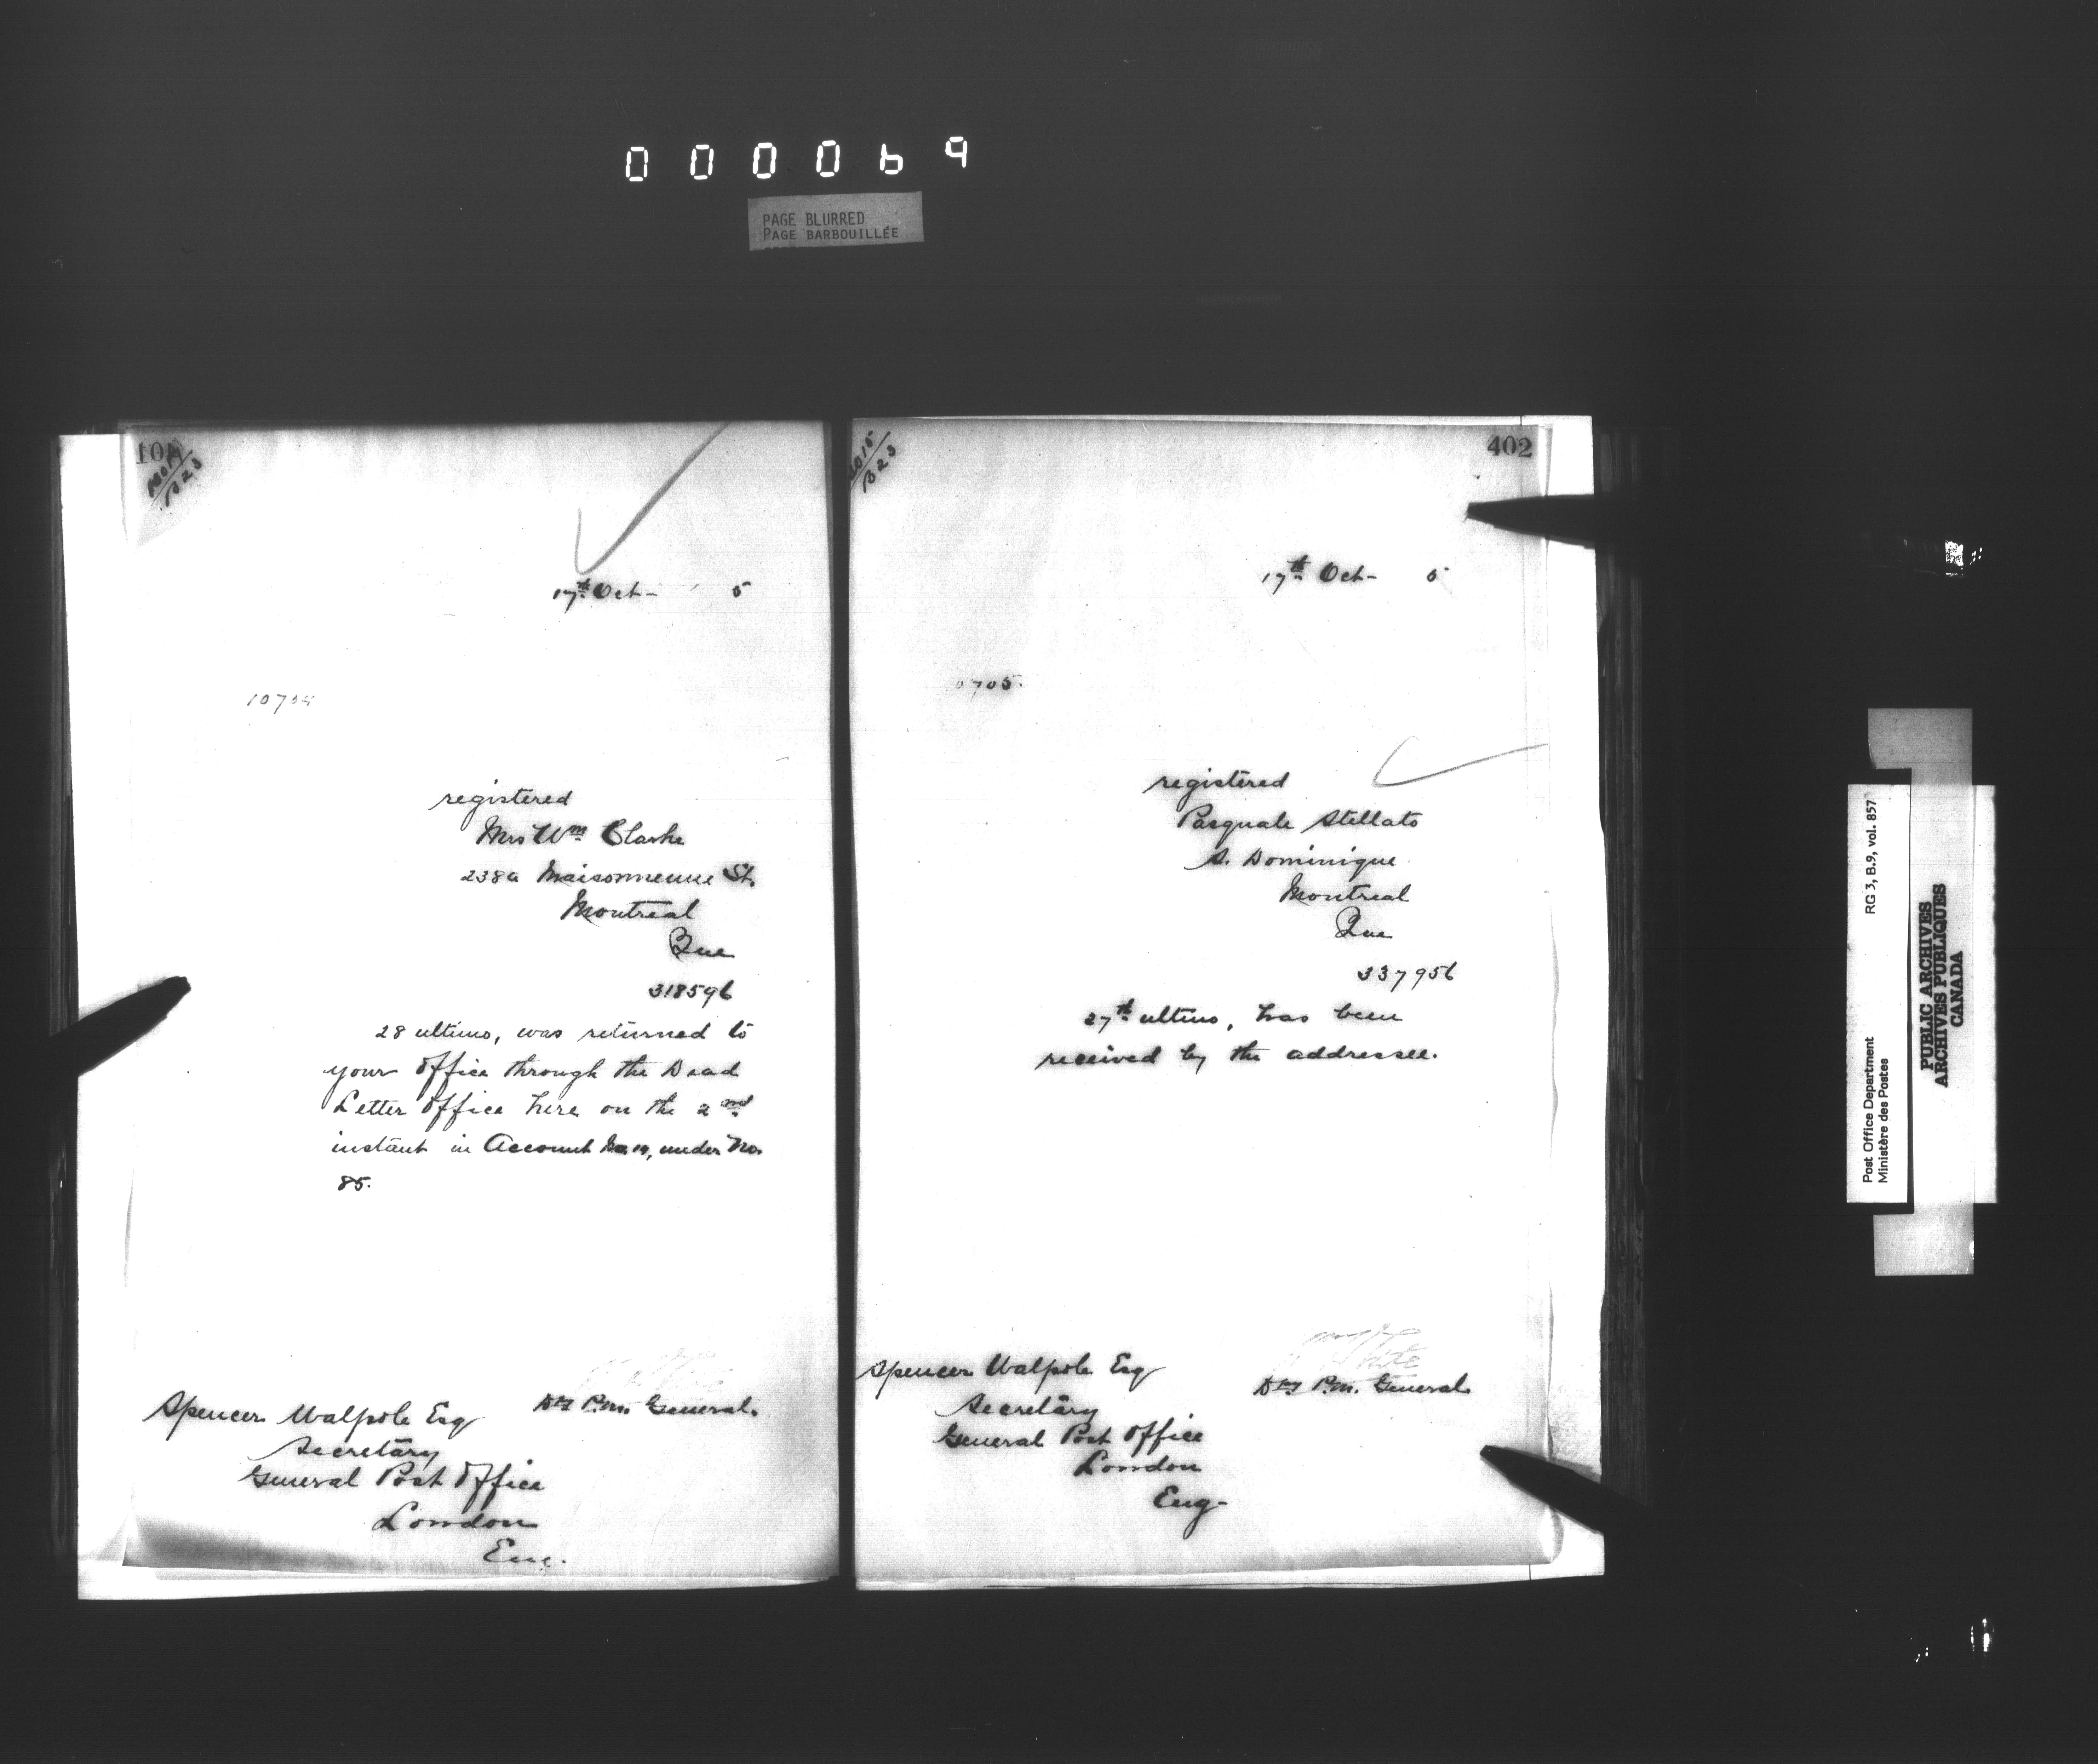 000069
PAGE BLURRED
PAGE BARBOUILLÉE
B23
17th Oct- 5
10704
registered
Mrs Wm Clarke
238a Maisonneuve St.
Montreal
Que
318596
28 ultimo, was returned to
your Office through the Dead
Letter Office here on the 2nd
instant in Account No 19, under No.
85.
Dy P.M. General.
Spencer Walpole Esq
Secretary
General Post Office
London
Eng.
402
B23
17th Oct- 5
0705.
registered
Pasquale Stellato
S. Dominique
Montreal
Que
337956
27th ultimo, has been
received by the addressee.
White
Dy P.M. General
Spencer Walpole Esq
Secretary
General Post Office
London
Eng-
Post Office Department RG 3, B.9, vol. 857
Ministère des Postes
PUBLIC ARCHIVES
ARCHIVES PUBLIQUES
CANADA